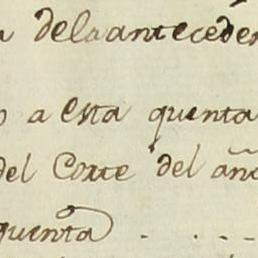 delaanteceden
a esta quenta
del Corte del año
quenta